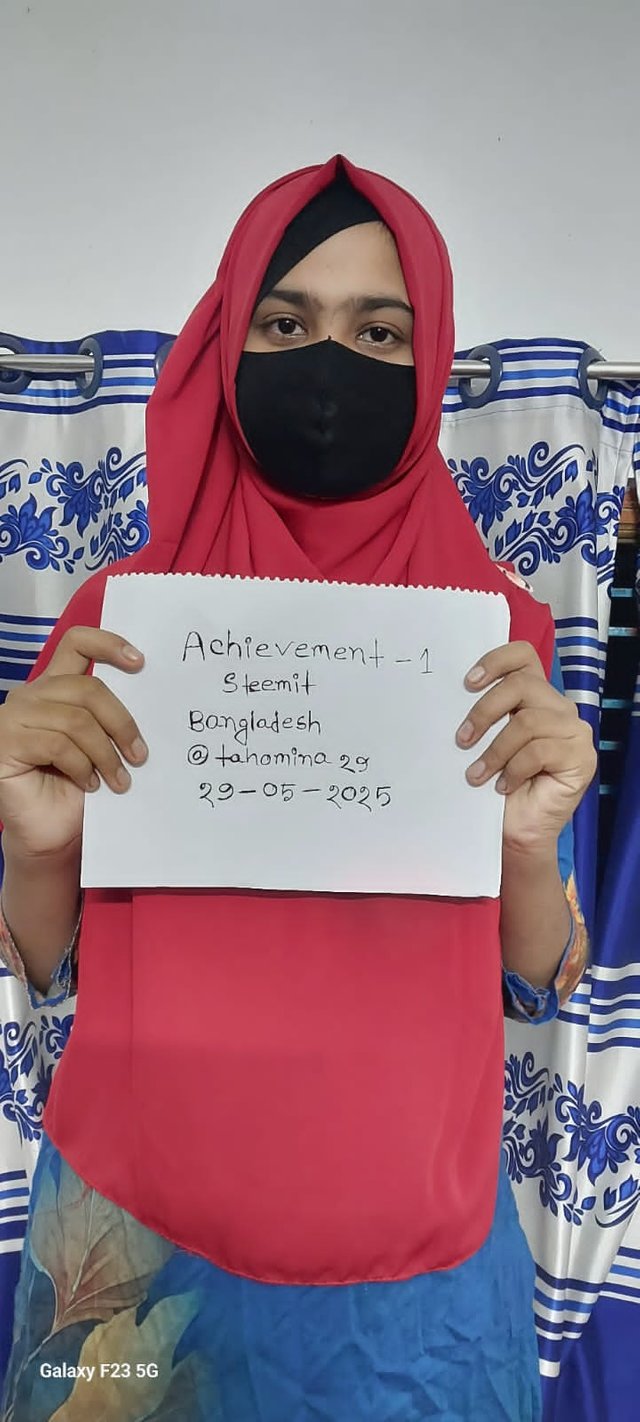 Achievement - 1
Steemit
Bangladesh
@tahomina29
29-05-2025
Galaxy F23 5G